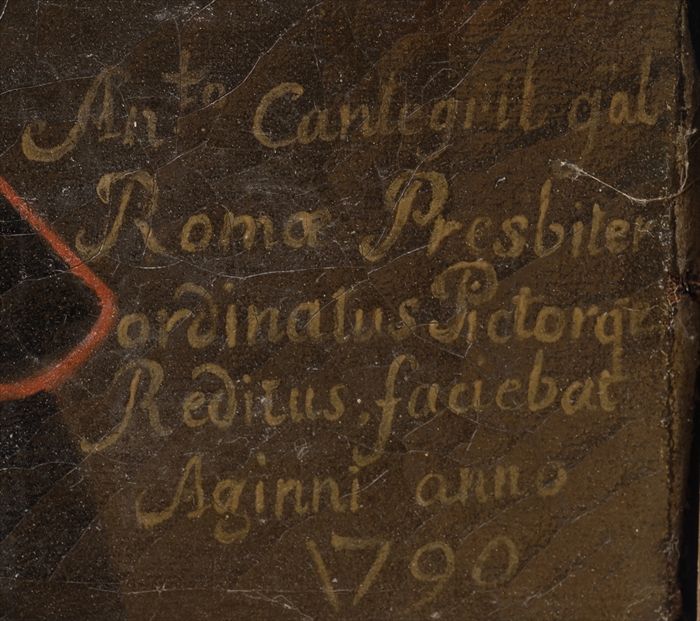 An.to Cantegril gal
Romæ Presbiter
ordinatus Pictorq
Reditus, faciebat
Aginni anno
1790